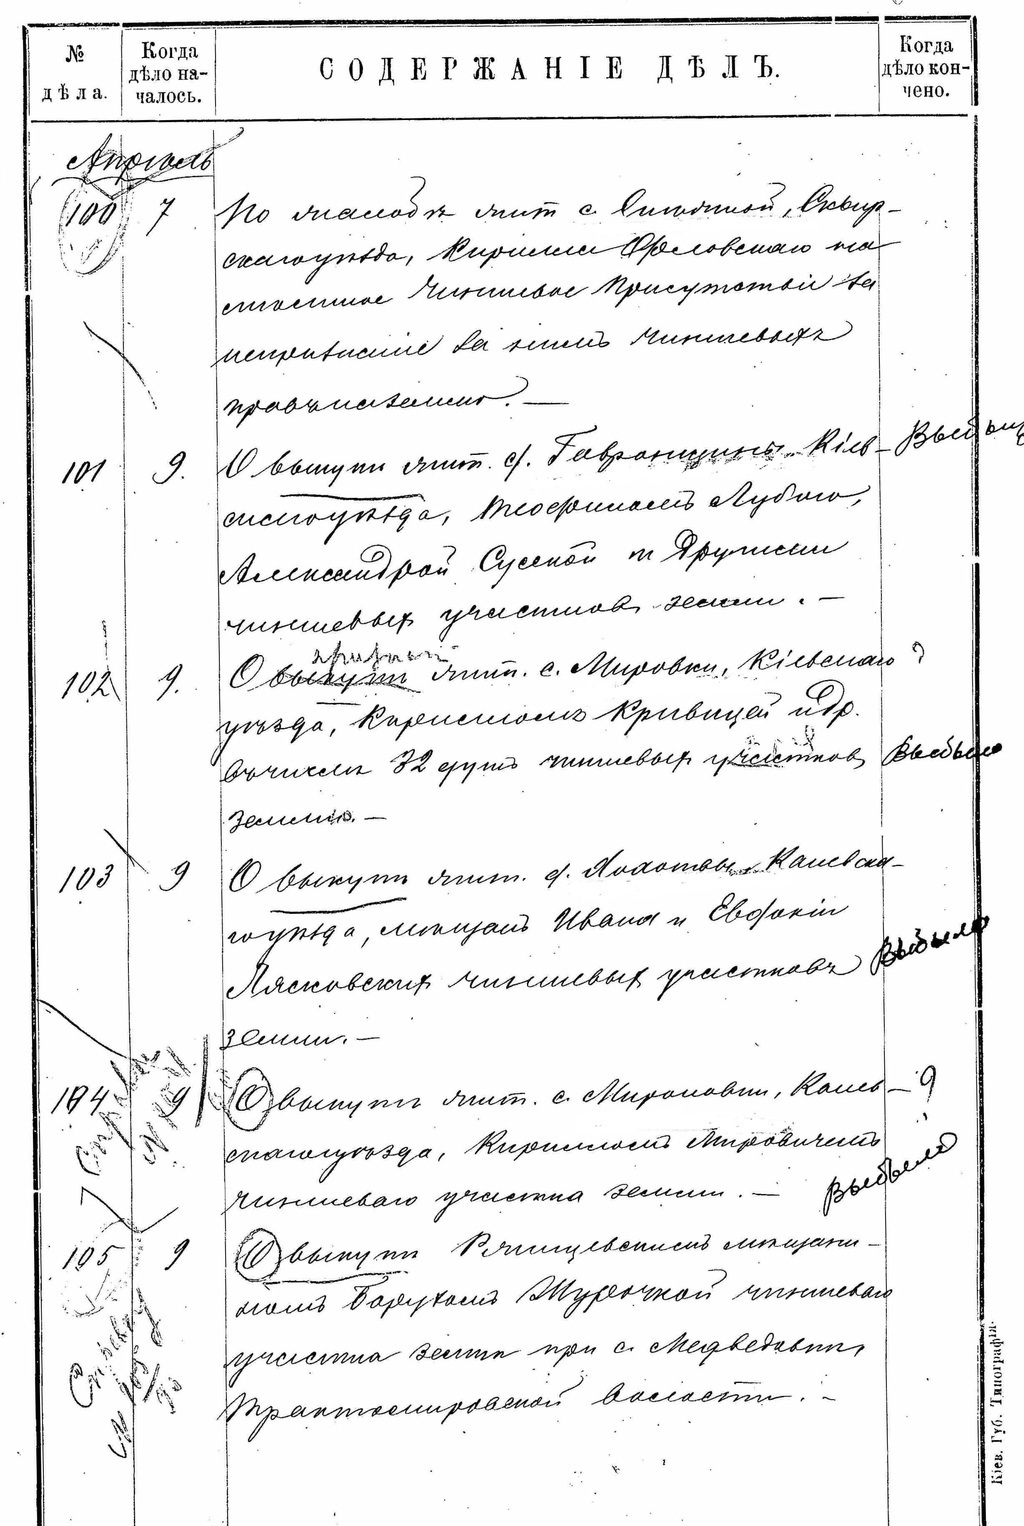 № дѣла.
Когда дѣло началось.
СОДЕРЖАНІЕ ДѢЛЪ.
Когда дѣло кончено.
Апрѣль
100 7 По жалобѣ жит. с. , Сквир-
скаго уѣзда, Кирилла Орловскаго на
мѣстное Чиншевое Присутствіе за
непризнаніе за нимъ чиншевыхъ
правъ на землю. —
101 9. О выкупѣ жит. д. Гавронщины, Кіев-
скаго уѣзда, Теофиломъ Лубого,
Александрой Сусской и Другими
чиншевыхъ участковъ земли. —
102 9. О выкупѣ жит. с. Мировки, Кіевскаго ?
уѣзда, Кривицкой и Др.
въ числѣ 32 душъ чиншевыхъ участковъ Выбыло
земли. —
103 9 О выкупѣ жит. д. Холотвы, Каневска-
го уѣзда, мѣщан. Ивана и Евфиміи
Лясковскихъ чиншевыхъ участковъ Выбыло
земли. —
104 9 О выкупѣ жит. с. Мироновки, Канев-
скаго уѣзда, Кирилломъ Мировичемъ
чиншеваго участка земли. — Выбыло
105 9 О выкупѣ Ржищевскимъ мѣщани-
номъ Борухомъ чиншеваго
участка земли при с. Медведовкѣ,
Трактомировской волости. —
Кіев. Губ. Типографія.